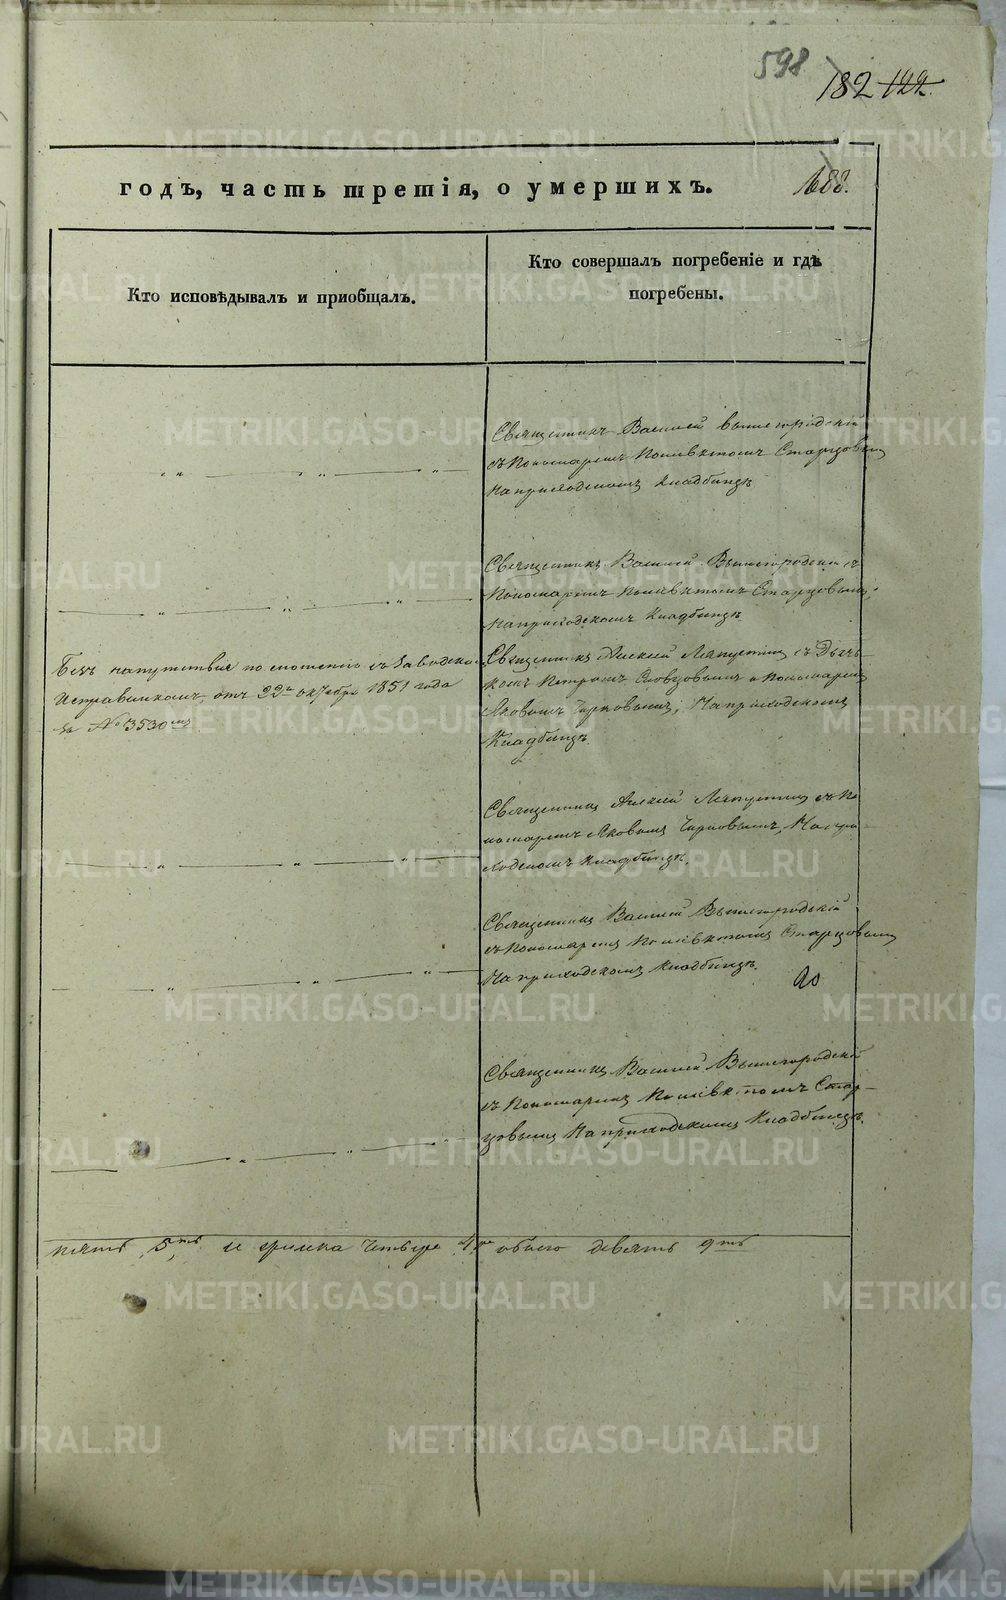 598
182 122.
годъ, часть третія, о умершихъ.
188.
Кто исповѣдывалъ и пріобщалъ.
Кто совершалъ погребеніе и гдѣ
погребены.
Священникъ Василей Вышегородскій
съ Пономаремъ Поліевктомъ Старцовым
На приходскомъ Кладбищѣ
Священникъ Василей Вышегородскій съ
Пономаремъ Поліевктомъ Старцовымъ,
На приходскомъ Кладбищѣ
Безъ напутствія по сношенію съ Заводским
Исправникомъ, отъ 22го октября 1851 года
за № 3530мъ
Священникъ Алексій Ляпустин съ Дьяч-
комъ Петромъ Словцовымъ и Пономаремъ
Яковымъ Чирковымъ, На приходскомъ
Кладбищѣ.
Священникъ Алексій Ляпустин съ По
номаремъ Яковымъ Чирковымъ, На при-
ходскомъ Кладбищѣ.
Священникъ Василей Вышегородскій
съ Пономаремъ Поліевктомъ Старцовым
На приходскомъ Кладбищѣ.
20
Священникъ Василей Вышегородскій
съ Пономаремъ Поліевктомъ Стар-
цовымъ На приходскомъ Кладбищѣ.
пять 5ть, и женска четыре 4ре обоего девять 9ть
METRIKI.GASO-URAL.RU